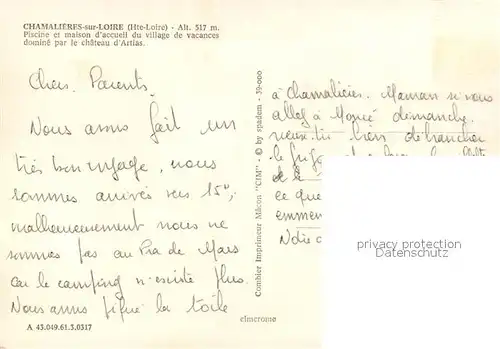 CHAMALIÈRES-sur-LOIRE (Hte-Loire) - Alt. 517 m.
Piscine et maison d'accueil du village de vacances
dominé par le château d'Artias.
Chers Parents.
Nous avons fait un
très bon voyage, nous
sommes arrivés vers 15h,
malheureusement nous ne
sommes pas au Pra de Mars
car le camping n'existe plus.
Nous avons piqué la toile
A 43.049.61.3.0317
Combier Imprimeur Mâcon "CIM" - © by spadem - 39-000
à Chamalières. Maman si vous
allez à dimanche,
veux-tu bien débrancher
le frigo et
et le
ce que
emmen
Notre
privacy protection
Datenschutz
elmcrome